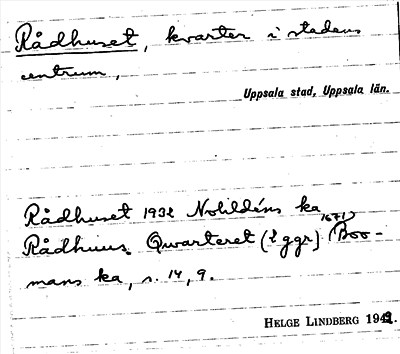 Rådhuset, kvarter i stadens
centrum,
Uppsala stad, Uppsala län.
Rådhuset 1932 Nohldéns ka
Rådhuus Quarteret (2 ggr) (Boo-
1671)
mans ka, s. 14, 9.
HELGE LINDBERG 1942.